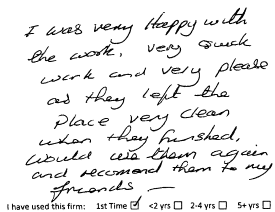 I was very Happy with
the work, very quick
work and very please
as they left the
Place very clean
when they finished,
would use them again
and recomend them to my
friends —
I have used this firm: 1st Time ☑ <2 yrs ☐ 2-4 yrs ☐ 5+ yrs ☐